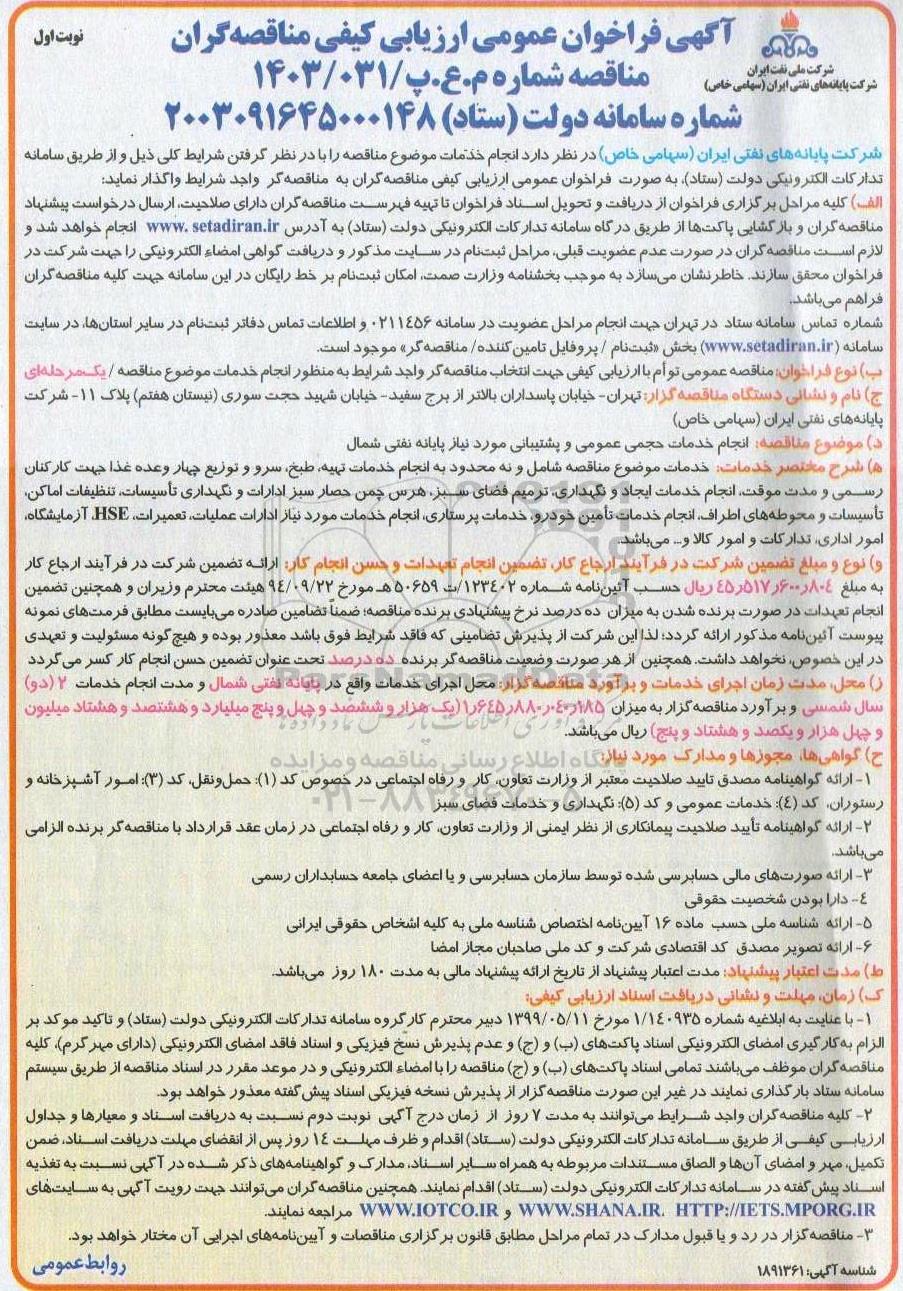 آگهی فراخوان عمومی ارزیابی کیفی مناقصه‌گران
نوبت اول
مناقصه شماره م.ع.پ/۱۴۰۳/۰۳۱
شماره سامانه دولت (ستاد) ۲۰۰۳۰۹۱۶۴۵۰۰۰۱۴۸
شرکت ملی نفت ایران
شرکت پایانه‌های نفتی ایران (سهامی خاص)
شرکت پایانه‌های نفتی ایران (سهامی خاص) در نظر دارد انجام خدمات موضوع مناقصه را با در نظر گرفتن شرایط کلی ذیل و از طریق سامانه
تدارکات الکترونیکی دولت (ستاد)، به صورت فراخوان عمومی ارزیابی کیفی مناقصه‌گران به مناقصه‌گر واجد شرایط واگذار نماید:
الف) کلیه مراحل برگزاری فراخوان از دریافت و تحویل اسناد فراخوان تا تهیه فهرست مناقصه‌گران دارای صلاحیت، ارسال درخواست پیشنهاد
مناقصه‌گران و بازگشایی پاکت‌ها از طریق درگاه سامانه تدارکات الکترونیکی دولت (ستاد) به آدرس www. setadiran.ir انجام خواهد شد و
لازم است مناقصه‌گران در صورت عدم عضویت قبلی، مراحل ثبت‌نام در سایت مذکور و دریافت گواهی امضاء الکترونیکی را جهت شرکت در
فراخوان محقق سازند. خاطرنشان می‌سازد به موجب بخشنامه وزارت صمت، امکان ثبت‌نام بر خط رایگان در این سامانه جهت کلیه مناقصه‌گران
فراهم می‌باشد.
شماره تماس سامانه ستاد در تهران جهت انجام مراحل عضویت در سامانه ۰۲۱۱۴۵۶ و اطلاعات تماس دفاتر ثبت‌نام در سایر استان‌ها، در سایت
سامانه (www.setadiran.ir) بخش «ثبت‌نام / پروفایل تامین‌کننده/ مناقصه‌گر» موجود است.
ب) نوع فراخوان: مناقصه عمومی توأم با ارزیابی کیفی جهت انتخاب مناقصه‌گر واجد شرایط به منظور انجام خدمات موضوع مناقصه / یک‌مرحله‌ای
ج) نام و نشانی دستگاه مناقصه‌گزار: تهران- خیابان پاسداران بالاتر از برج سفید- خیابان شهید حجت سوری (نیستان هفتم) پلاک ۱۱- شرکت
پایانه‌های نفتی ایران (سهامی خاص)
د) موضوع مناقصه: انجام خدمات حجمی عمومی و پشتیبانی مورد نیاز پایانه نفتی شمال
ه) شرح مختصر خدمات: خدمات موضوع مناقصه شامل و نه محدود به انجام خدمات تهیه، طبخ، سرو و توزیع چهار وعده غذا جهت کارکنان
رسمی و مدت موقت، انجام خدمات ایجاد و نگهداری، ترمیم فضای سبز، هرس چمن حصار سبز ادارات و نگهداری تأسیسات، تنظیفات اماکن،
تأسیسات و محوطه‌های اطراف، انجام خدمات تأمین خودرو، خدمات پرستاری، انجام خدمات مورد نیاز ادارات عملیات، تعمیرات، HSE، آزمایشگاه،
امور اداری، تدارکات و امور کالا و... می‌باشد.
و) نوع و مبلغ تضمین شرکت در فرآیند ارجاع کار، تضمین انجام تعهدات و حسن انجام کار: ارائه تضمین شرکت در فرآیند ارجاع کار
به مبلغ ۴۵٫۵۱۷٫۶۰۰٫۸۰۴ ریال حسب آئین‌نامه شماره ۱۲۳۴۰۲/ت ۵۰۶۵۹ هـ مورخ ۹۴/۰۹/۲۲ هیئت محترم وزیران و همچنین تضمین
انجام تعهدات در صورت برنده شدن به میزان ده درصد نرخ پیشنهادی برنده مناقصه؛ ضمناً تضامین صادره می‌بایست مطابق فرمت‌های نمونه
پیوست آئین‌نامه مذکور ارائه گردد؛ لذا این شرکت از پذیرش تضامینی که فاقد شرایط فوق باشد معذور بوده و هیچ‌گونه مسئولیت و تعهدی
در این خصوص، نخواهد داشت. همچنین از هر صورت وضعیت مناقصه‌گر برنده ده درصد تحت عنوان تضمین حسن انجام کار کسر می‌گردد
ز) محل، مدت زمان اجرای خدمات و برآورد مناقصه‌گزار: محل اجرای خدمات واقع در پایانه نفتی شمال و مدت انجام خدمات ۲ (دو)
سال شمسی و برآورد مناقصه‌گزار به میزان ۱٫۶۴۵٫۸۸۰٫۰۴۰٫۱۸۵ (یک هزار و ششصد و چهل و پنج میلیارد و هشتصد و هشتاد میلیون
و چهل هزار و یکصد و هشتاد و پنج) ریال می‌باشد.
ح) گواهی‌ها، مجوزها و مدارک مورد نیاز:
۱- ارائه گواهینامه مصدق تایید صلاحیت معتبر از وزارت تعاون، کار و رفاه اجتماعی در خصوص کد (۱): حمل‌ونقل، کد (۳): امور آشپزخانه و
رستوران، کد (۴): خدمات عمومی و کد (۵): نگهداری و خدمات فضای سبز
۲- ارائه گواهینامه تأیید صلاحیت پیمانکاری از نظر ایمنی از وزارت تعاون، کار و رفاه اجتماعی در زمان عقد قرارداد با مناقصه‌گر برنده الزامی
می‌باشد.
۳- ارائه صورت‌های مالی حسابرسی شده توسط سازمان حسابرسی و یا اعضای جامعه حسابداران رسمی
۴- دارا بودن شخصیت حقوقی
۵- ارائه شناسه ملی حسب ماده ۱۶ آیین‌نامه اختصاص شناسه ملی به کلیه اشخاص حقوقی ایرانی
۶- ارائه تصویر مصدق کد اقتصادی شرکت و کد ملی صاحبان مجاز امضا
ط) مدت اعتبار پیشنهاد: مدت اعتبار پیشنهاد از تاریخ ارائه پیشنهاد مالی به مدت ۱۸۰ روز می‌باشد.
ک) زمان، مهلت و نشانی دریافت اسناد ارزیابی کیفی:
۱- با عنایت به ابلاغیه شماره ۱/۱۴۰۹۳۵ مورخ ۱۳۹۹/۰۵/۱۱ دبیر محترم کارگروه سامانه تدارکات الکترونیکی دولت (ستاد) و تاکید موکد بر
الزام به‌کارگیری امضای الکترونیکی اسناد پاکت‌های (ب) و (ج) و عدم پذیرش نسخ فیزیکی و اسناد فاقد امضای الکترونیکی (دارای مهر گرم)، کلیه
مناقصه‌گران موظف می‌باشند تمامی اسناد پاکت‌های (ب) و (ج) مناقصه را با امضاء الکترونیکی و در موعد مقرر در اسناد مناقصه از طریق سیستم
سامانه ستاد بارگذاری نمایند در غیر این صورت مناقصه‌گزار از پذیرش نسخه فیزیکی اسناد پیش‌گفته معذور خواهد بود.
۲- کلیه مناقصه‌گران واجد شرایط می‌توانند به مدت ۷ روز از زمان درج آگهی نوبت دوم نسبت به دریافت اسناد و معیارها و جداول
ارزیابی کیفی از طریق سامانه تدارکات الکترونیکی دولت (ستاد) اقدام و ظرف مهلت ۱۴ روز پس از انقضای مهلت دریافت اسناد، ضمن
تکمیل، مهر و امضای آن‌ها و الصاق مستندات مربوطه به همراه سایر اسناد، مدارک و گواهینامه‌های ذکر شده در آگهی نسبت به تغذیه
اسناد پیش‌گفته در سامانه تدارکات الکترونیکی دولت (ستاد) اقدام نمایند. همچنین مناقصه‌گران می‌توانند جهت رویت آگهی به سایت‌های
WWW.SHANA.IR. HTTP://IETS.MPORG.IR و WWW.IOTCO.IR مراجعه نمایند.
۳- مناقصه‌گزار در رد و یا قبول مدارک در تمام مراحل مطابق قانون برگزاری مناقصات و آیین‌نامه‌های اجرایی آن مختار خواهد بود.
شناسه آگهی: ۱۸۹۱۳۶۱
روابط عمومی